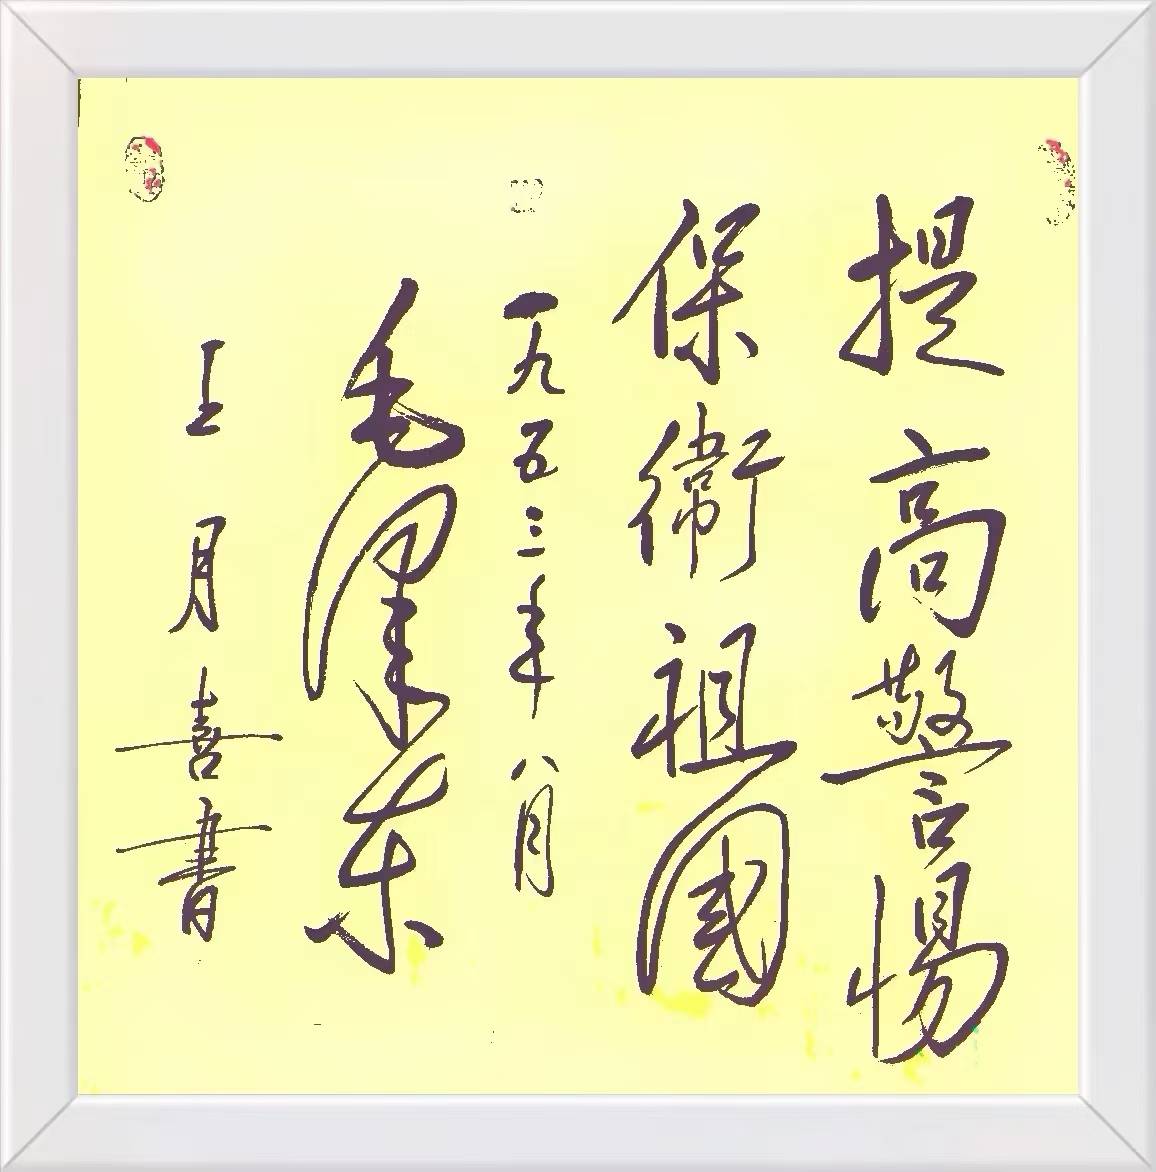 提高警惕
保衛祖國
一九五三年八月
毛澤东
王月喜書